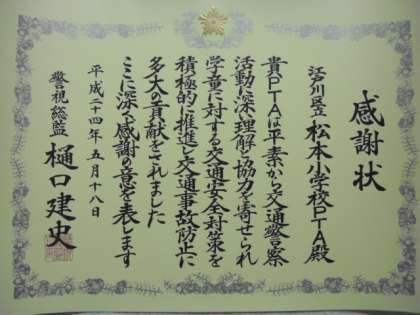 感謝状
江戸川区立 松本小学校PTA殿
貴PTAは平素から交通警察
活動に深い理解と協力を寄せられ
学童に対する交通安全対策を
積極的に推進し交通事故防止に
多大の貢献をされました
ここに深く感謝の意を表します
平成二十四年五月十八日
警視総監 樋口建史